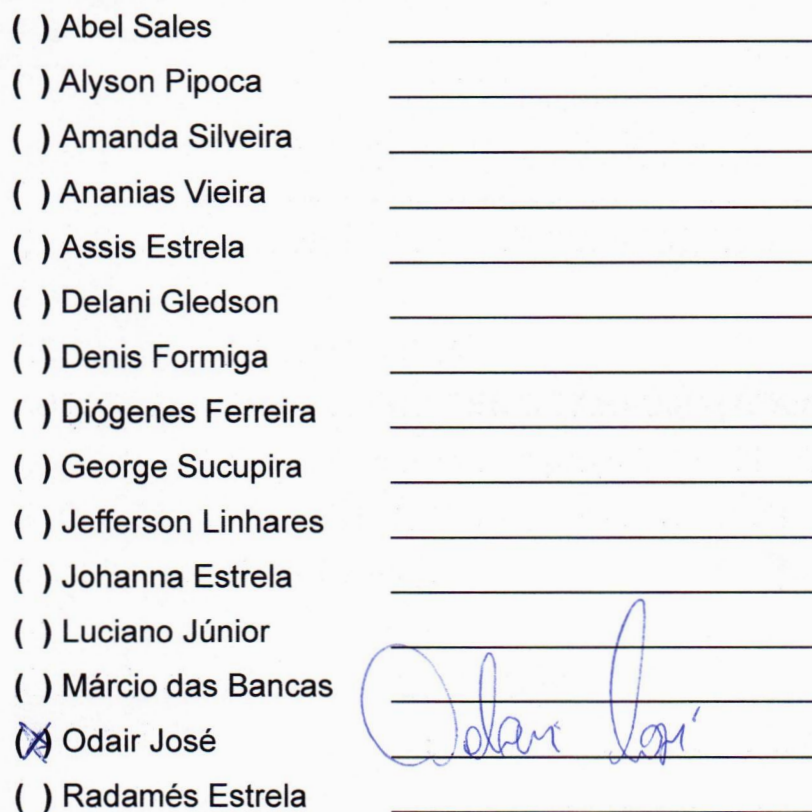 ( ) Abel Sales
( ) Alyson Pipoca
( ) Amanda Silveira
( ) Ananias Vieira
( ) Assis Estrela
( ) Delani Gledson
( ) Denis Formiga
( ) Diógenes Ferreira
( ) George Sucupira
( ) Jefferson Linhares
( ) Johanna Estrela
( ) Luciano Júnior
( ) Márcio das Bancas
(X) Odair José Odair José
( ) Radamés Estrela